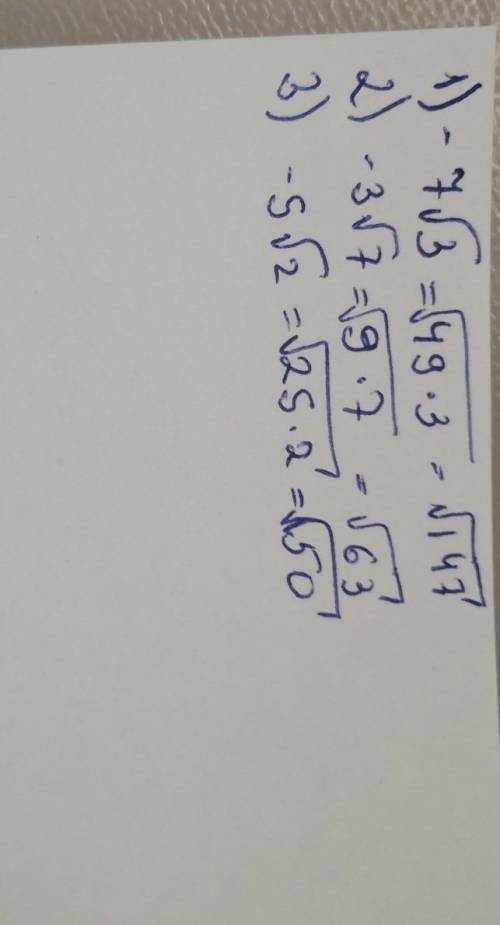 1) - 7√3 = √49·3 = √147
2) - 3√7 = √9·7 = √63
3) - 5√2 = √25·2 = √50